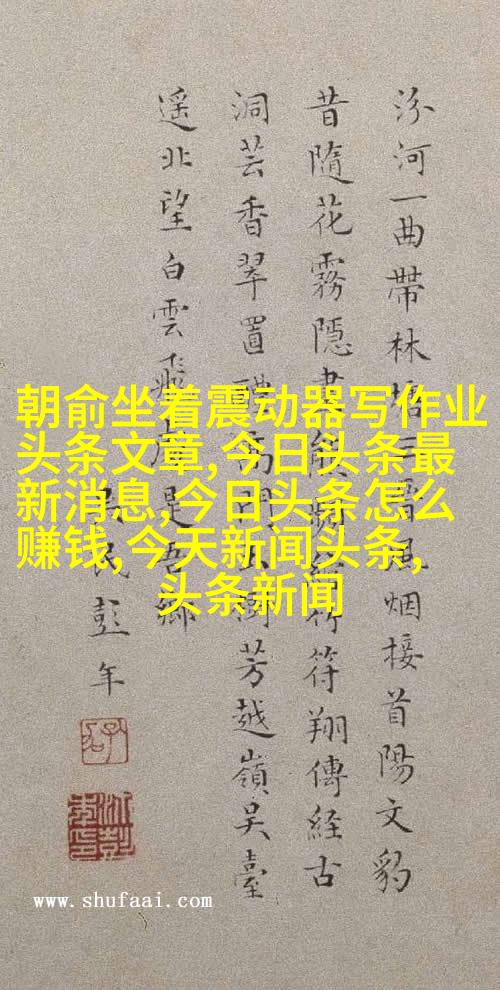 汾河一曲帶林風烟接首陽文豹
昔隨花霧隱符翔傳経古
洞芸香翠置芳越嶺吳臺
遥北望白雲飛是吾鄉
民彭年
朝俞坐着震动器写作业
头条文章,今日头条最
新消息,今日头条怎么
赚钱,今天新闻头条,
头条新闻
www.shufaai.com